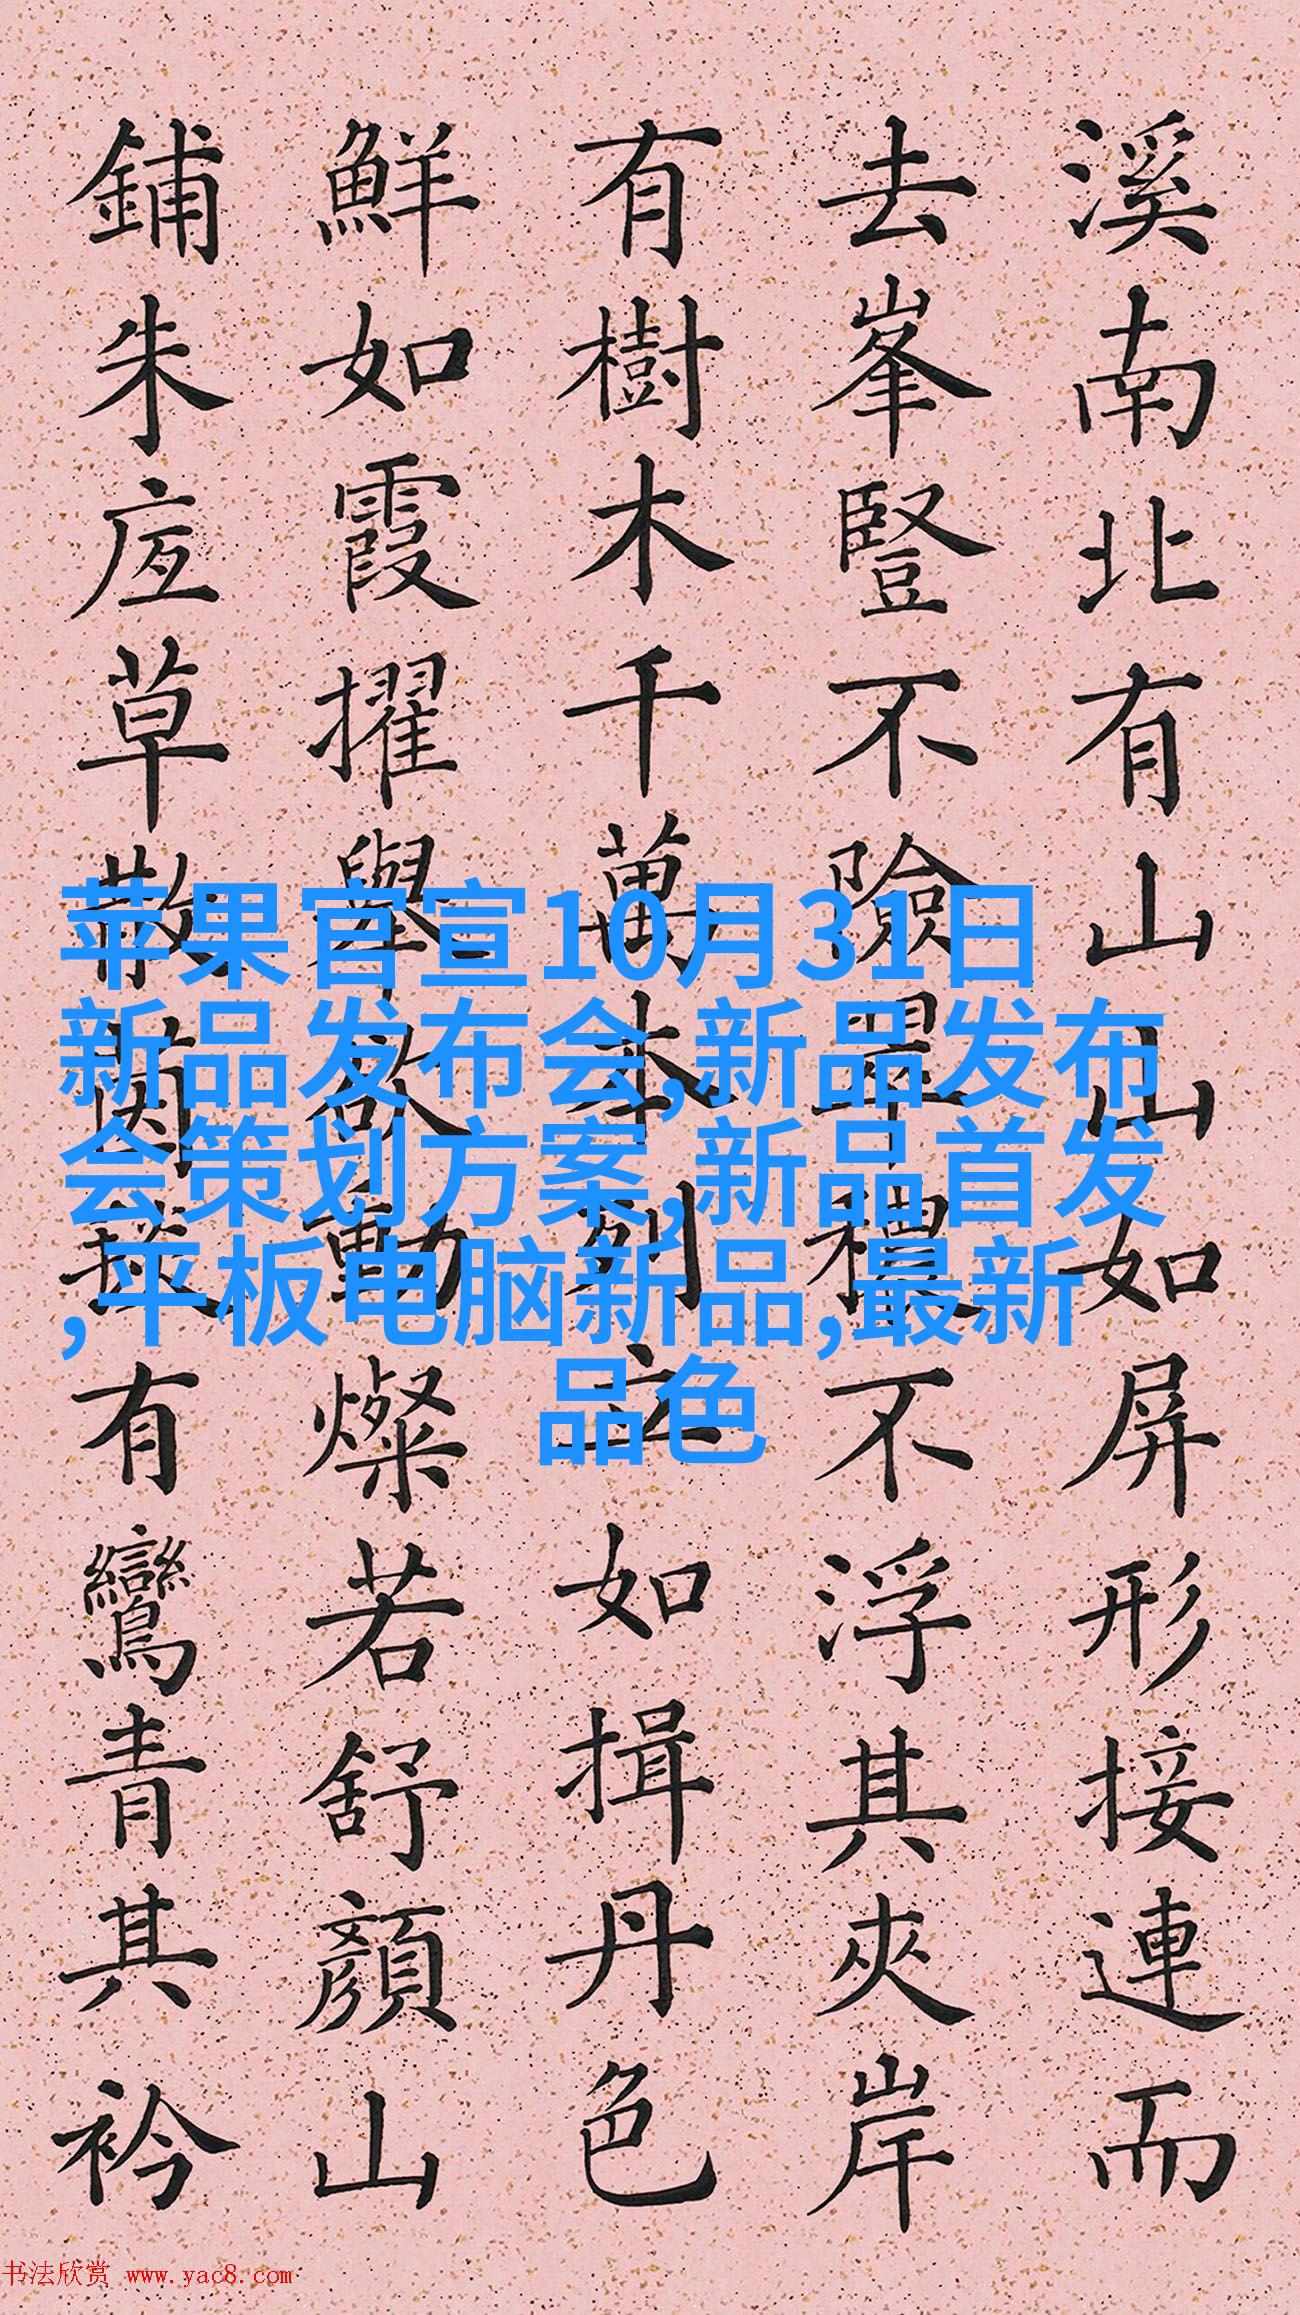 溪南北有山山如屏形接連而
去峯豎不險翠穠不浮其夾岸
有樹木千萬本列立如揖丹色
鮮如霞擢舉欲動燦若舒顏山
鋪朱底草散茵毯有鸞青其衿
苹果官宣10月31日
新品发布会,新品发布
会策划方案,新品首发
,平板电脑新品,最新
品色
书法欣赏 www.yac8.com